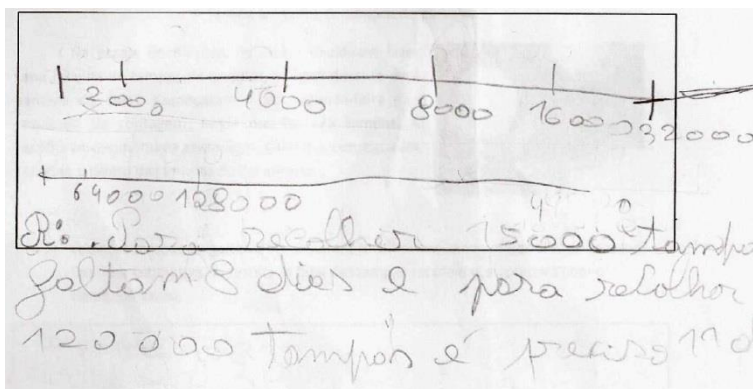 3000 4000 8000 16000 32000
64000 128000
R: Para recolher 15000 tampa
faltam 8 dias e para recolher
120000 tampas é preciso 11 d